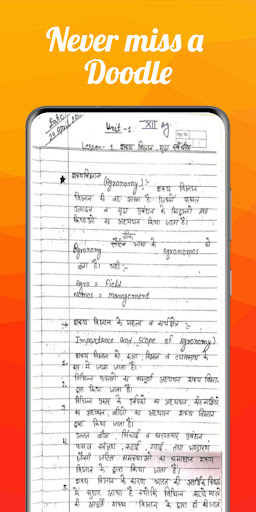 Never miss a
Doodle
Date
29 April
Unit - 1. XII Ag.
Lesson - 1 शस्य विज्ञान, मृदा
शस्यविज्ञान
(Agronomy) :- शस्य विज्ञान,
विज्ञान की वह शाखा है। जिसमें फसल
उत्पादन व मृदा प्रबंधन के सिद्धान्तों तथा
क्रियाओं का अध्ययन किया जाता है।
Agronomy भाषा के Agronomos से
बना है। यहाँ :-
Agro = Field
Nomos = Management
शस्य विज्ञान के महत्व व कार्यक्षेत्र :-
(Importance and scope of Agronomy)
1. शस्य विज्ञान को कला, विज्ञान व व्यवसाय के
रूप में जाना जाता है।
2. विभिन्न फसलों का सम्पूर्ण अध्ययन शस्य विज्ञान
किया जाता है।
3. विभिन्न प्रकार के
का अध्ययन, आदि का अध्ययन शस्य विज्ञान
द्वारा किया जाता है।
4. सिंचाई व खरपतवार प्रबंधन
फसल कटाई, तथा भण्डारण
जैसी समस्याओं का समाधान शस्य
विज्ञान के द्वारा किया जाता है।
5. शस्य विज्ञान के कारण भारत की आर्थिक
सुधार आया है क्योंकि विभिन्न
की आपूर्ति शस्य विज्ञान के द्वारा ही की